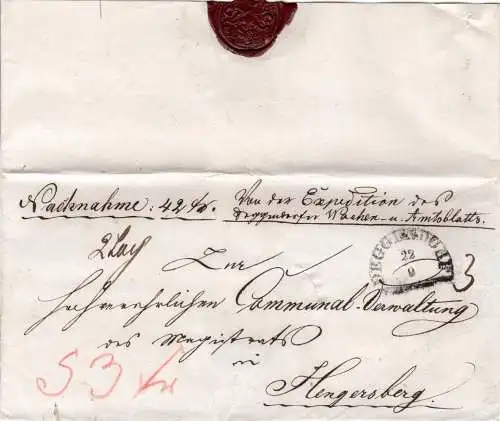 Nachnahme: 42 kr. Von der Expedition des
Deggendorfer Wochen- u. Amtsblatts.
DEGGENDORF
22
9
3
2 Loth
Zur
hochverehrlichen Communal-Verwaltung
des Magistrats
in
Hengersberg.
53 kr